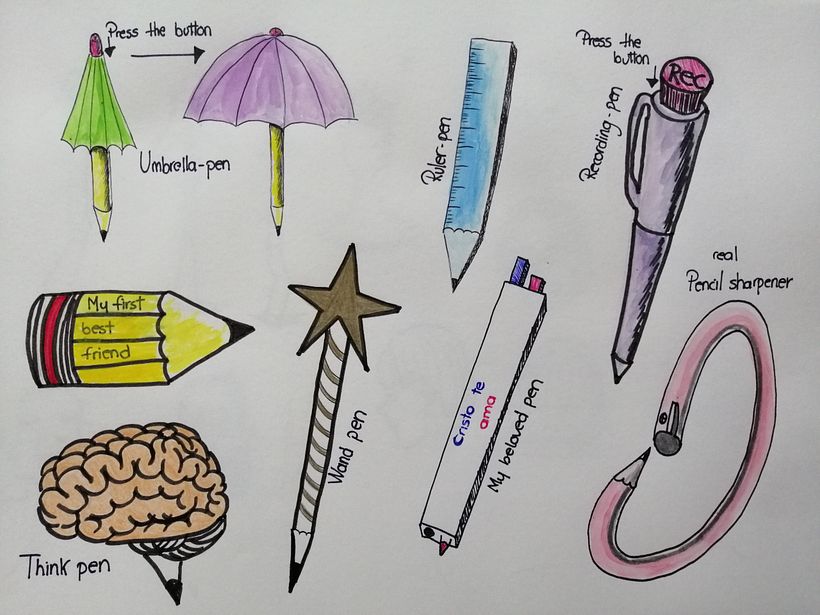 Press the button
Umbrella-pen
Ruler-pen
Press the
button
Rec
Recording-pen
real
Pencil sharpener
My first
best
friend
Wand pen
Cristo te
ama
My beloved pen
Think pen